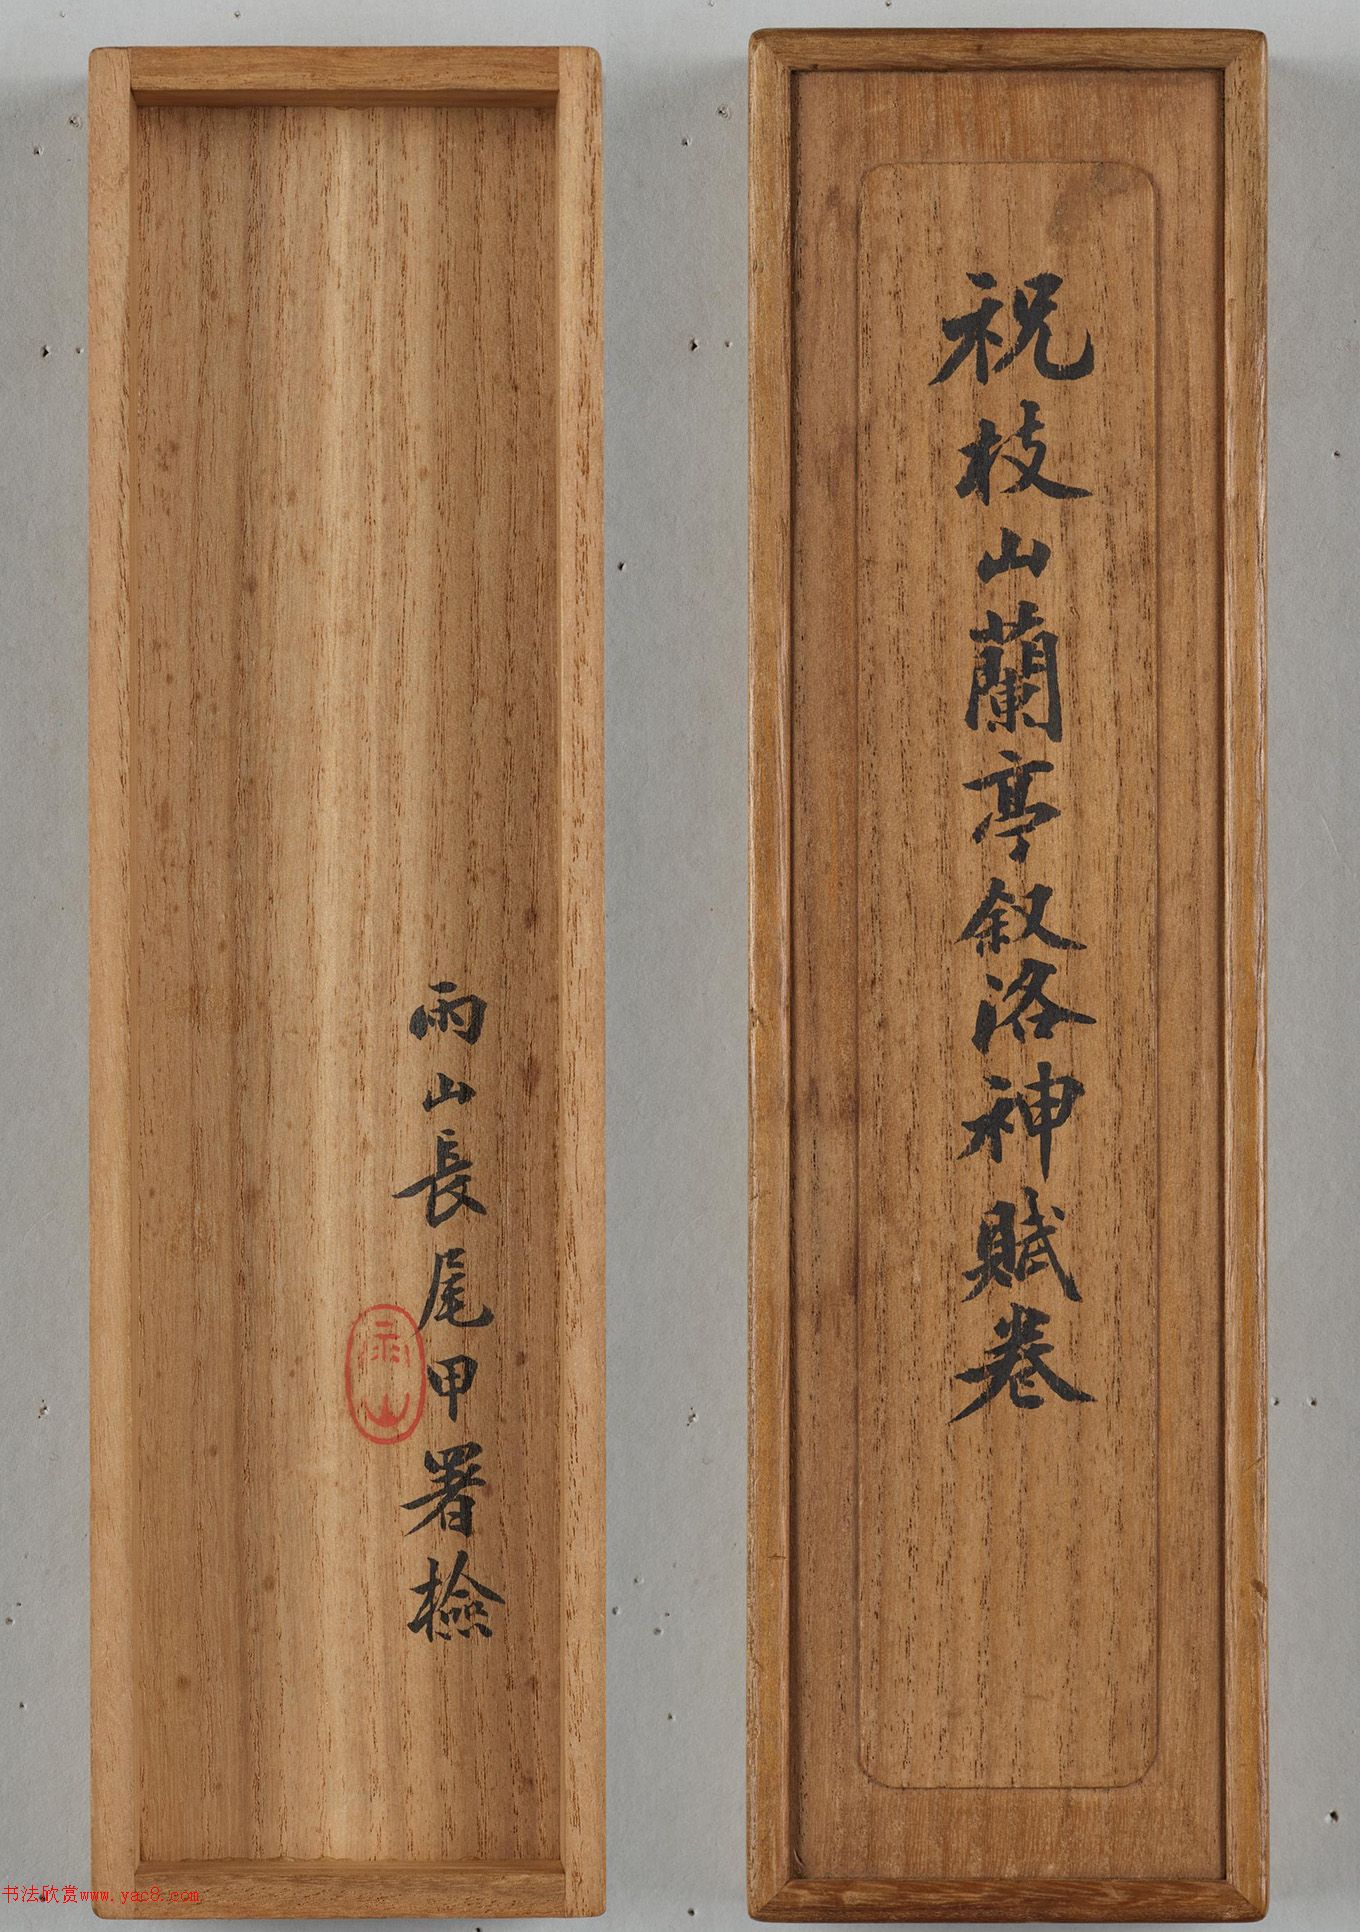 祝枝山蘭亭叙洛神賦卷
雨山長尾甲署檢
雨山
书法欣赏www.yac8.com